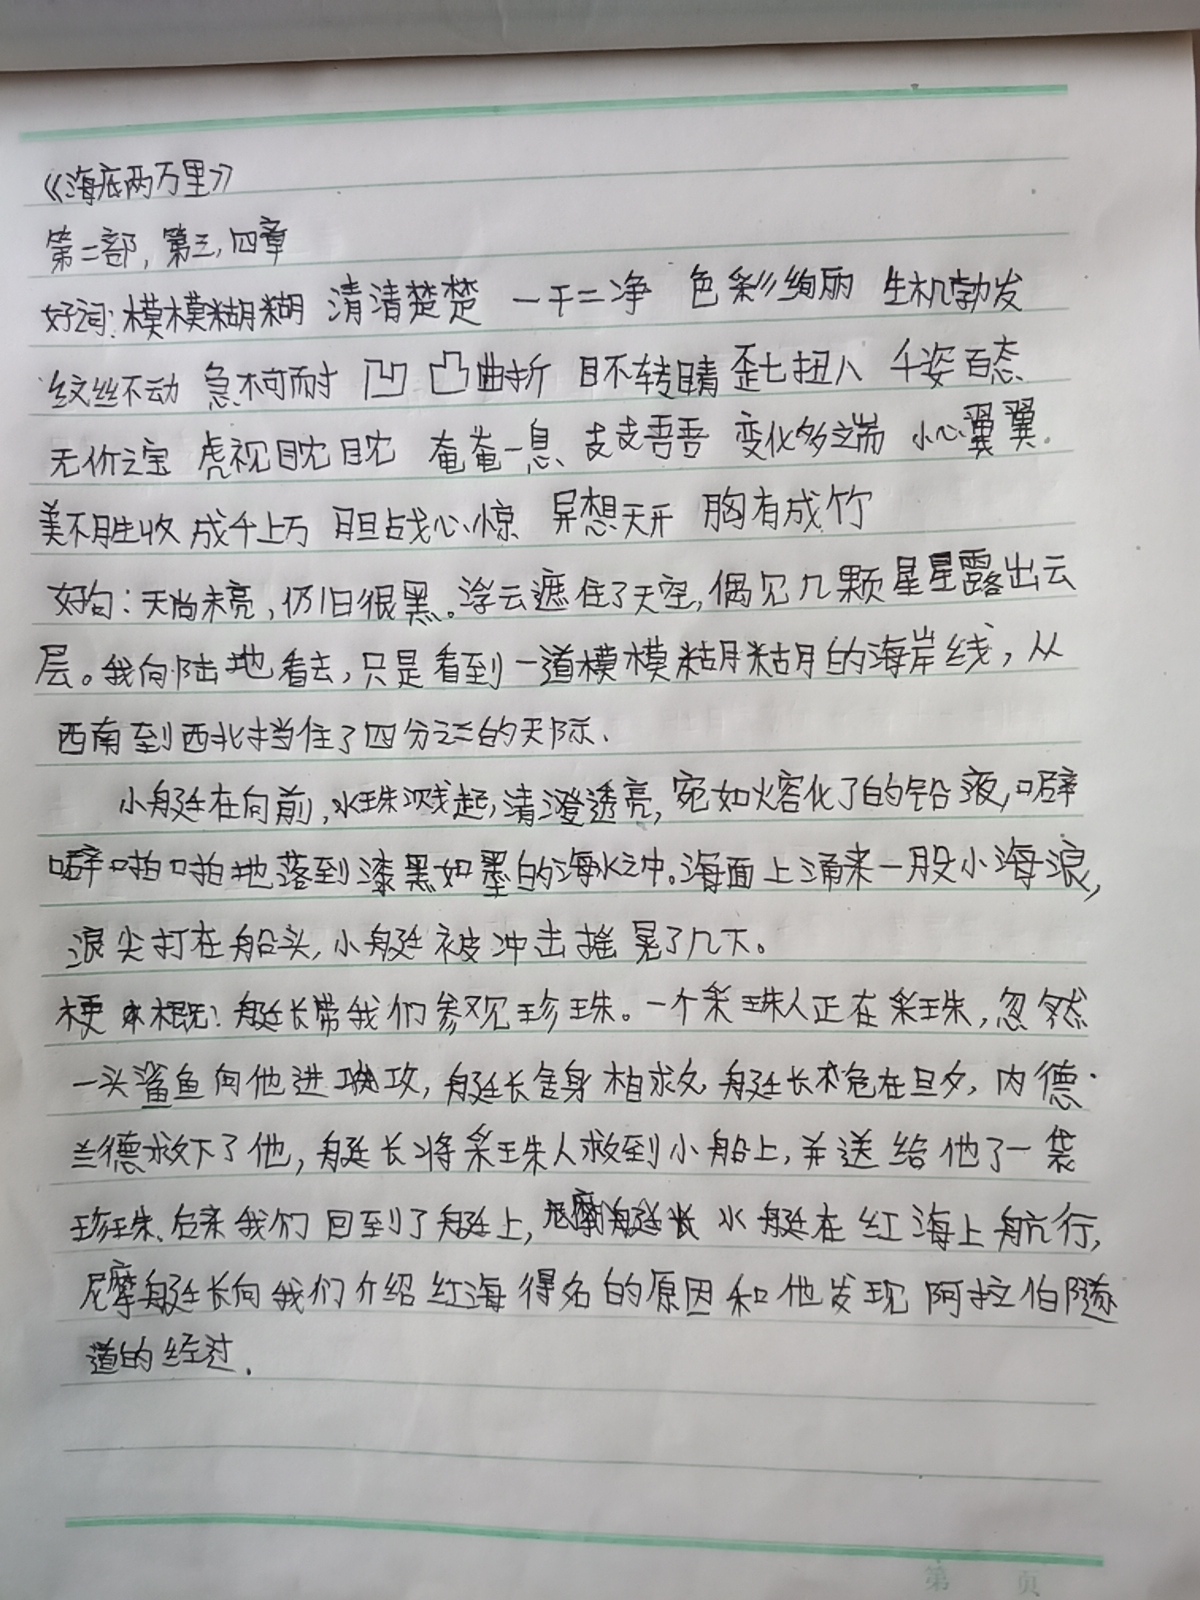 《海底两万里》
第二部,第三,四章
好词:模模糊糊 清清楚楚 一干二净 色彩绚丽 生机勃发
纹丝不动 急不可耐 凹凸曲折 目不转睛 歪七扭八 千姿百态
无价之宝 虎视眈眈 奄奄一息 支支吾吾 变化多端 小心翼翼.
美不胜收 成千上万 胆战心惊 异想天开 胸有成竹
好句:天尚未亮,仍旧很黑。浮云遮住了天空,偶见几颗星星露出云
层。我向陆地看去,只是看到一道模模糊糊的海岸线,从
西南到西北挡住了四分之三的天际.
小艇在向前,水珠溅起,清澄透亮,宛如熔化了的铅液,噼
噼啪啪地落到漆黑如墨的海水之中。海面上涌来一股小海浪,
浪尖打在船头,小艇被冲击摇晃了几下。
梗概:艇长带我们参观珍珠。一个采珠人正在采珠,忽然
一头鲨鱼向他进攻,艇长舍身相求父艇长危在旦夕,内德·
兰德救下了他,艇长将采珠人救到小船上,并送给他了一袋
珍珠.后来我们回到了艇上,水艇在红海上航行,
尼摩艇长向我们介绍红海得名的原因和他发现阿拉伯隧
道的经过.
第 页